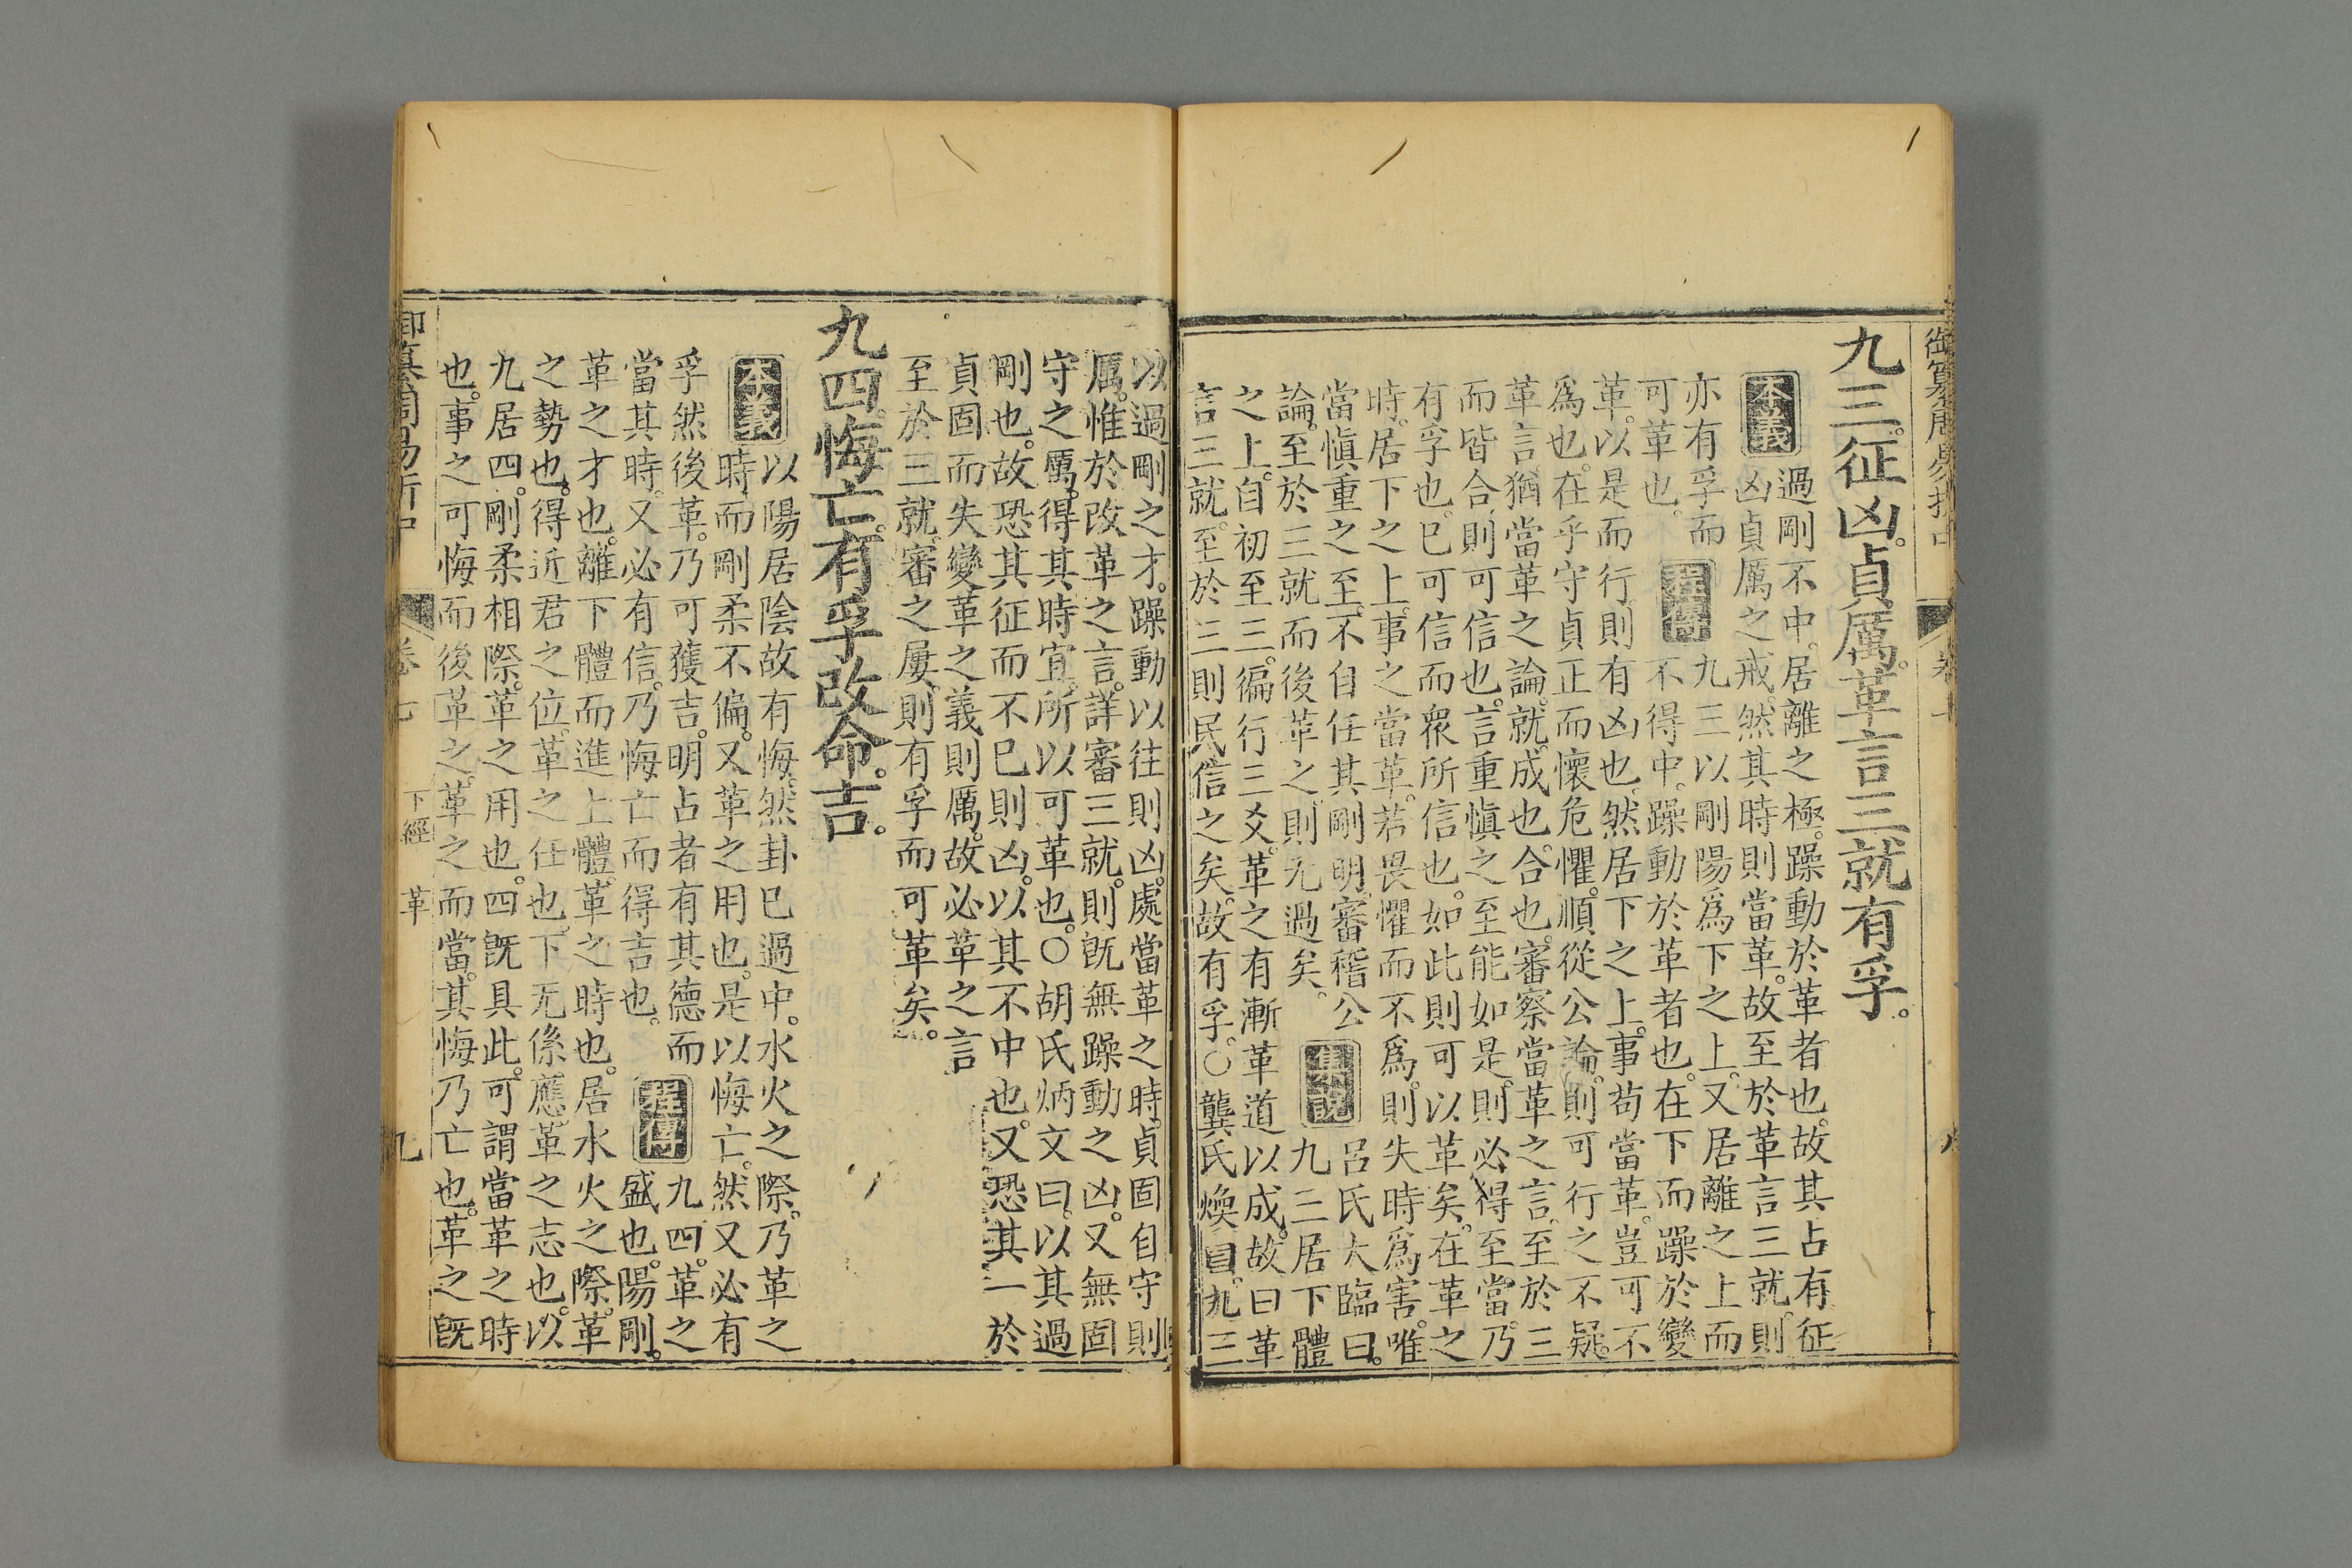 御纂周易折中
九三。征凶。貞厲。革言三就有孚。
本義
過剛不中。居離之極。躁動於革者也。故其占有征
凶貞厲之戒。然其時則當革。故至於革言三就。則
亦有孚而
可革也。
程傳
九三以剛陽爲下之上。又居離之上而
不得中。躁動於革者也。在下而躁於變
革。以是而行則有凶也。然居下之上。事苟當革。豈可不
爲也。在乎守貞正而懷危懼。順從公論。則可行之不疑。
革言猶當革之論。就。成也。合也。審察當革之言。至於三
而皆合。則可信也。言重慎之至能如是。則必得至當。乃
有孚也。已可信而衆所信也。如此則可以革矣。在革之
時。居下之上。事之當革。若畏懼而不爲。則失時爲害。唯
當慎重之至。不自任其剛明。審稽公
論。至於三就而後革之則无過矣。
集說
呂氏大臨曰。
九三居下體
之上。自初至三。徧行三爻。革之有漸革道以成。故曰革
言三就。至於三則民信之矣。故有孚。○龔氏煥曰。九三
以過剛之才。躁動以往則凶。處當革之時。貞固自守則
厲。惟於改革之言。詳審三就。則旣無躁動之凶。又無固
守之厲。得其時宜。所以可革也。○胡氏炳文曰。以其過
剛也。故恐其征而不已則凶。以其不中也。又恐其一於
貞固而失變革之義則厲。故必革之言
至於三就。審之屢則有孚而可革矣。
九四。悔亡。有孚改命。吉。
本義
以陽居陰故有悔。然卦已過中。水火之際。乃革之
時而剛柔不偏。又革之用也。是以悔亡。然又必有
孚然後革。乃可獲吉。明占者有其德而
當其時。又必有信。乃悔亡而得吉也。
程傳
九四。革之
盛也。陽剛。
革之才也。離下體而進上體。革之時也。居水火之際。革
之勢也。得近君之位。革之任也。下无係應。革之志也。以
九居四。剛柔相際。革之用也。四旣具此。可謂當革之時
也。事之可悔而後革之。革之而當。其悔乃亡也。革之旣
御纂周易折中
卷七
下經
革
九